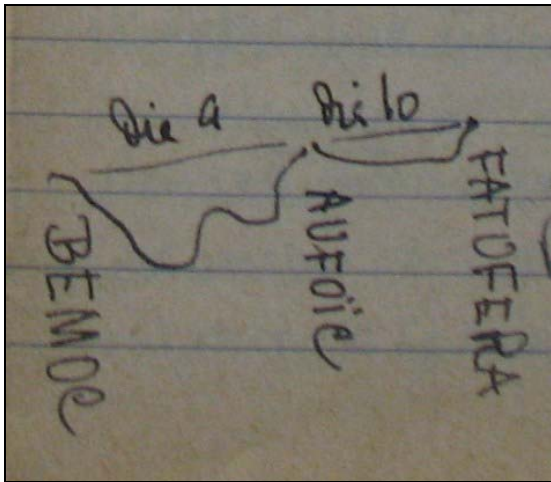 Dia 9
Dia 10
BEMOC
AUFOÏC
FATUFERA